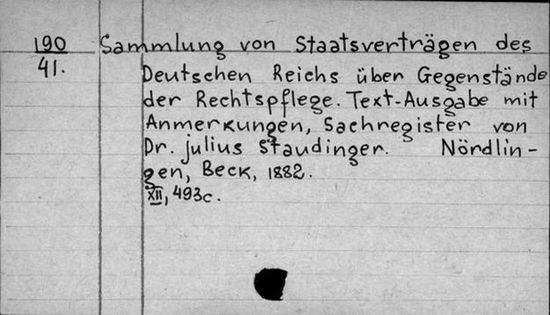 190 Sammlung von Staatsverträgen des
41. Deutschen Reichs über Gegenstände
der Rechtspflege. Text-Ausgabe mit
Anmerkungen, Sachregister von
Dr. Julius Staudinger. Nördlin-
gen, Beck, 1882.
XII, 493c.